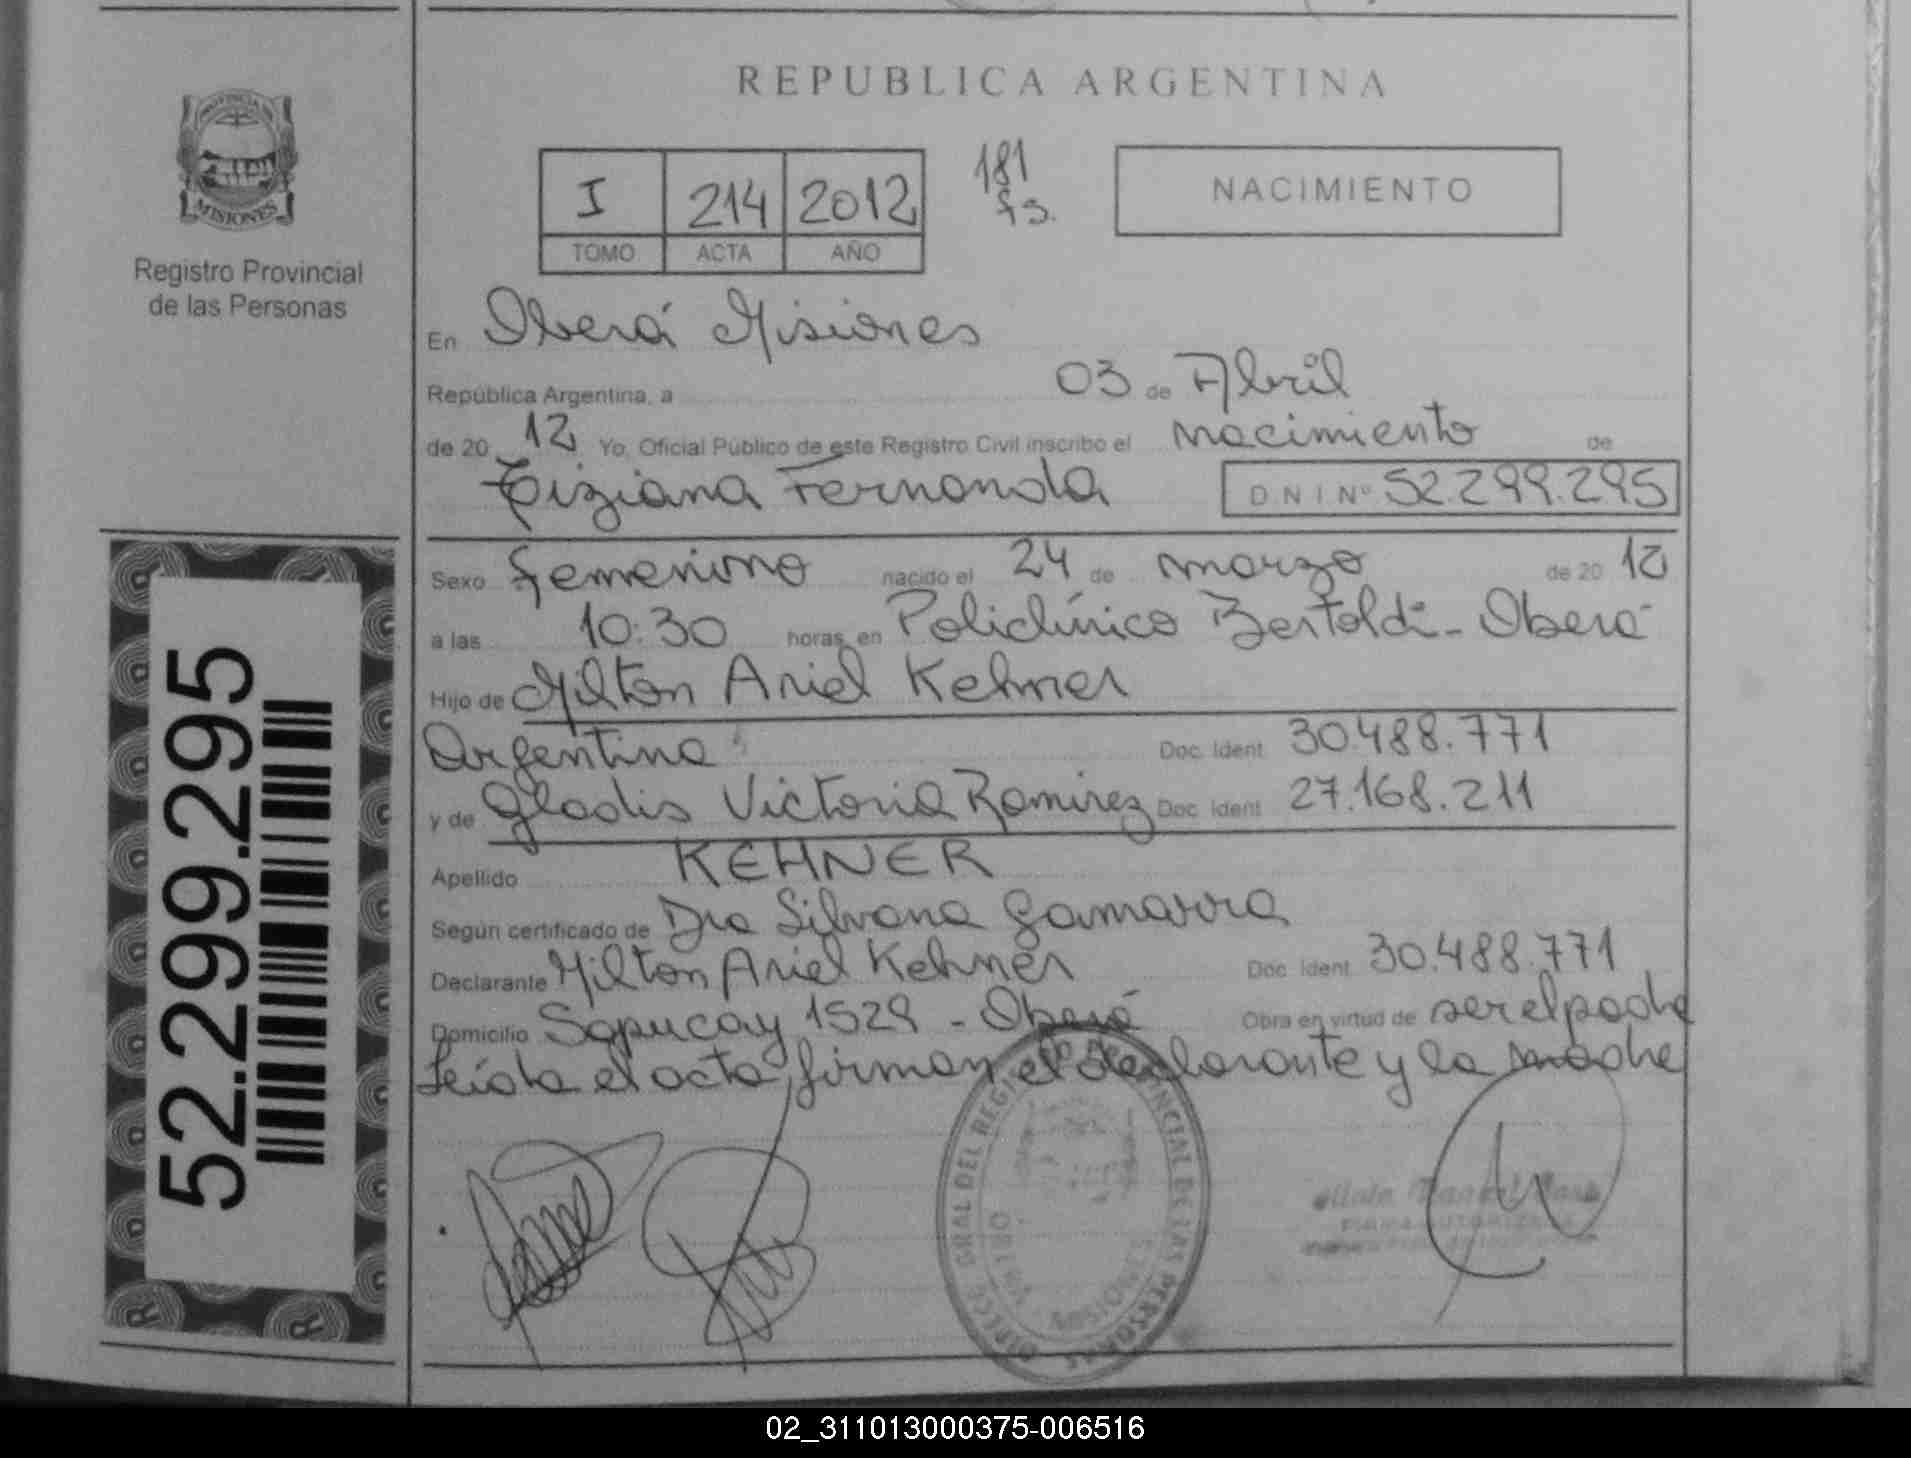 REPUBLICA ARGENTINA
PROVINCIA DE
MISIONES
Registro Provincial
de las Personas
I 214 2012
TOMO ACTA AÑO
181
fs.
NACIMIENTO
En Oberá Misiones
República Argentina, a 03 de Abril
de 20 12 Yo, Oficial Público de este Registro Civil inscribo el nacimiento de
Tiziana Fernanda D N I Nº 52.299.295
Sexo femenino nacido el 24 de marzo de 20 12
a las 10:30 horas, en Policlínico Bertoldi - Oberá
Hijo de Milton Ariel Kehner
Argentina Doc. Ident. 30.488.771
y de Gladis Victoria Ramirez Doc. Ident. 27.168.211
Apellido KEHNER
Según certificado de Dra Silvana Gamarra
Declarante Milton Ariel Kehner Doc. Ident. 30.488.771
Domicilio Sapucay 1529 - Oberá Obra en virtud de ser el padre
Leída el acta, firman el declarante y la madre
52.299.295
DIRECC. GRAL DEL REGISTRO PROVINCIAL DE LAS PERSONAS
MISIONES
FIRMA AUTORIZADA
02_311013000375-006516